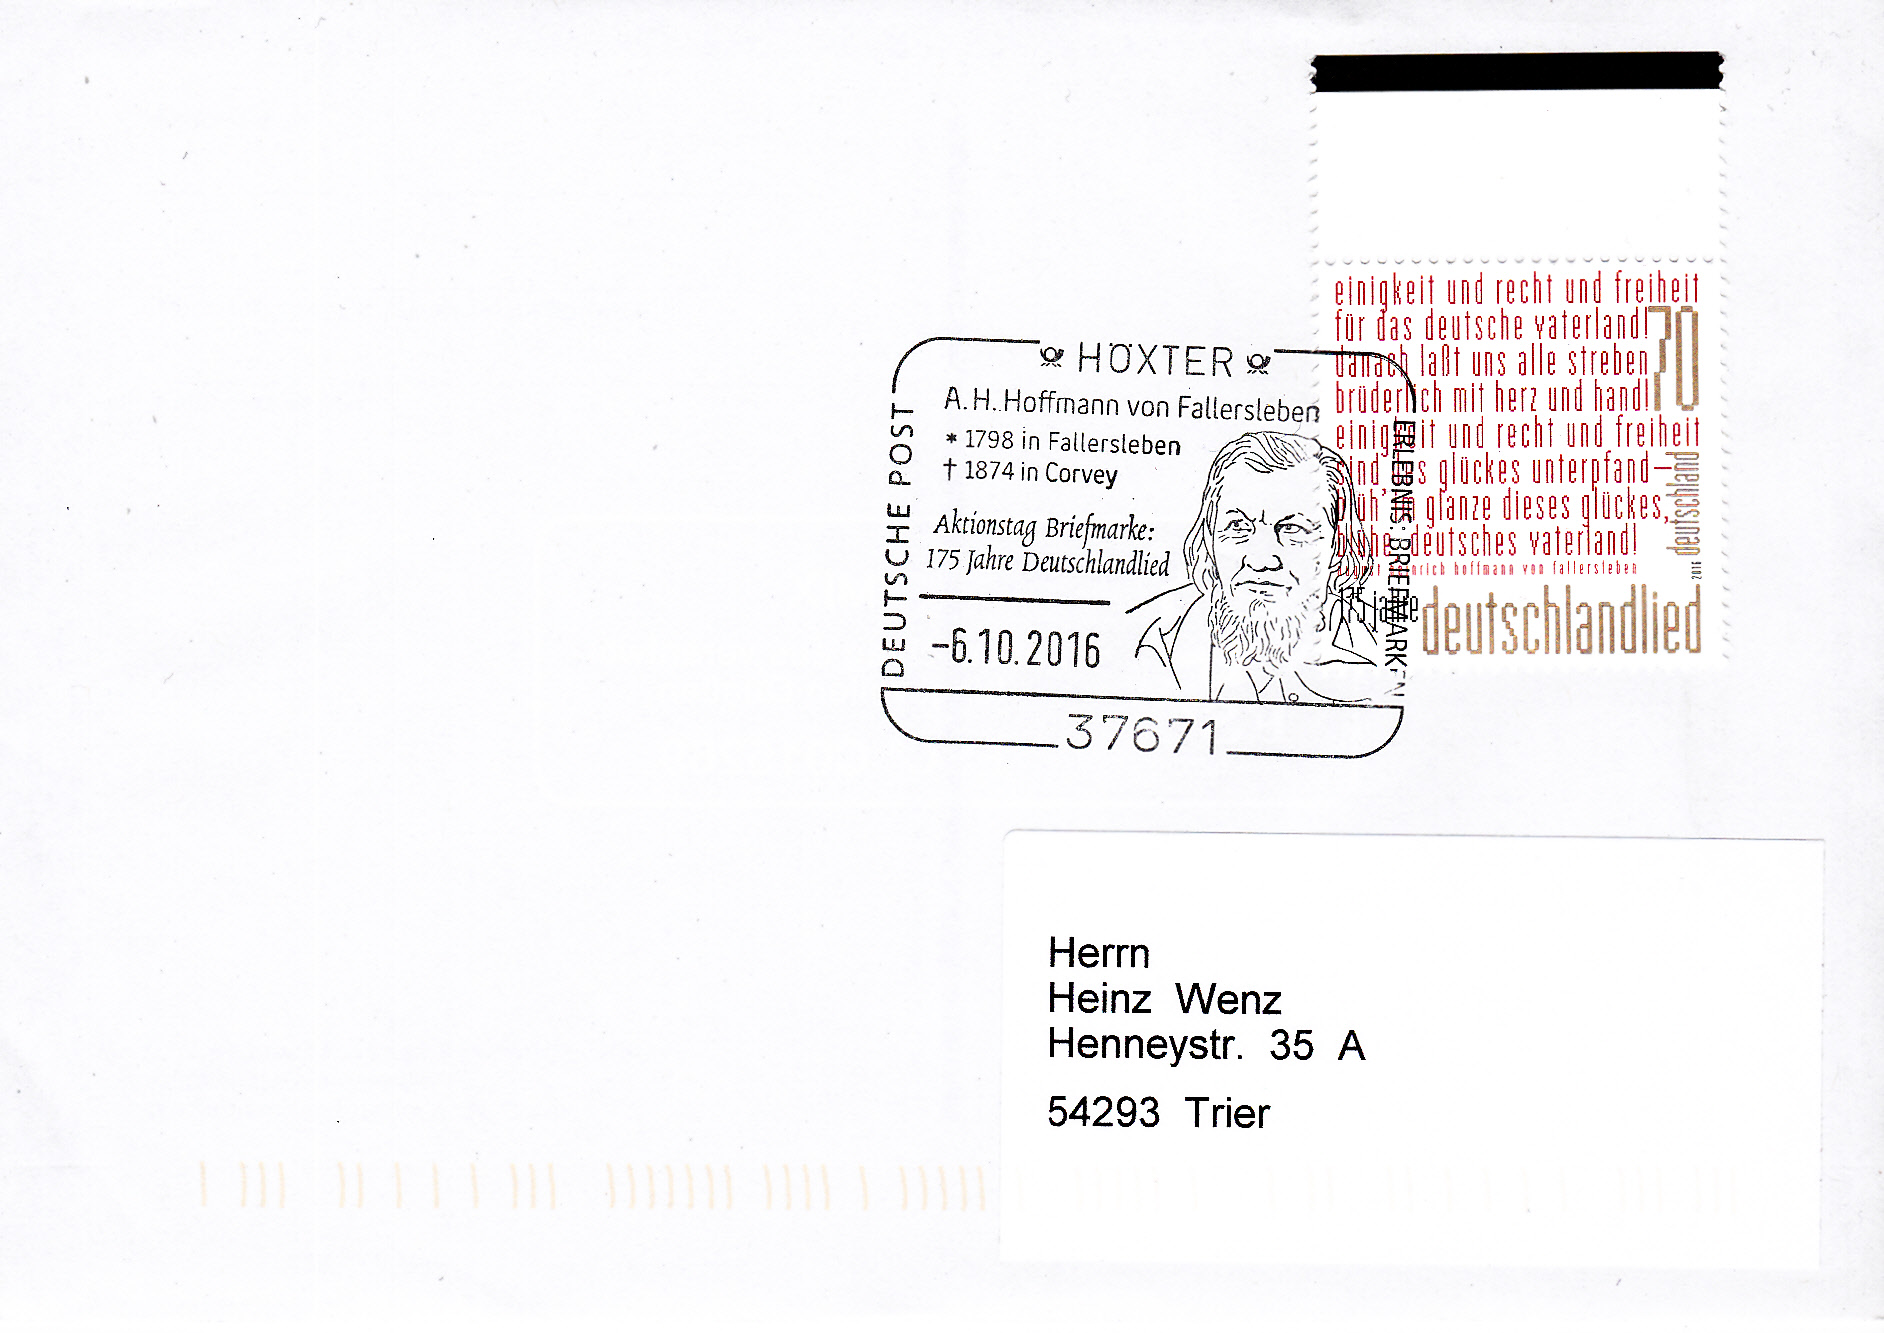 HÖXTER
A.H. Hoffmann von Fallersleben
* 1798 in Fallersleben
† 1874 in Corvey
Aktionstag Briefmarke:
175 Jahre Deutschlandlied
-6.10.2016
37671
DEUTSCHE POST
ERLEBNIS: BRIEFMARKEN
einigkeit und recht und freiheit
für das deutsche vaterland!
danach laßt uns alle streben
brüderlich mit herz und hand!
einigkeit und recht und freiheit
sind des glückes unterpfand–
blüh' im glanze dieses glückes,
blühe, deutsches vaterland!
august heinrich hoffmann von fallersleben
175 jahre deutschlandlied
70
deutschland
2016
Herrn
Heinz Wenz
Henneystr. 35 A
54293 Trier